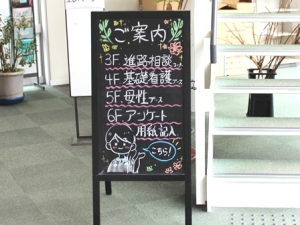 ご案内
3F 進路相談コーナー
4F 基礎看護ブース
5F 母性ブース
6F アンケート
用紙記入
こちら!